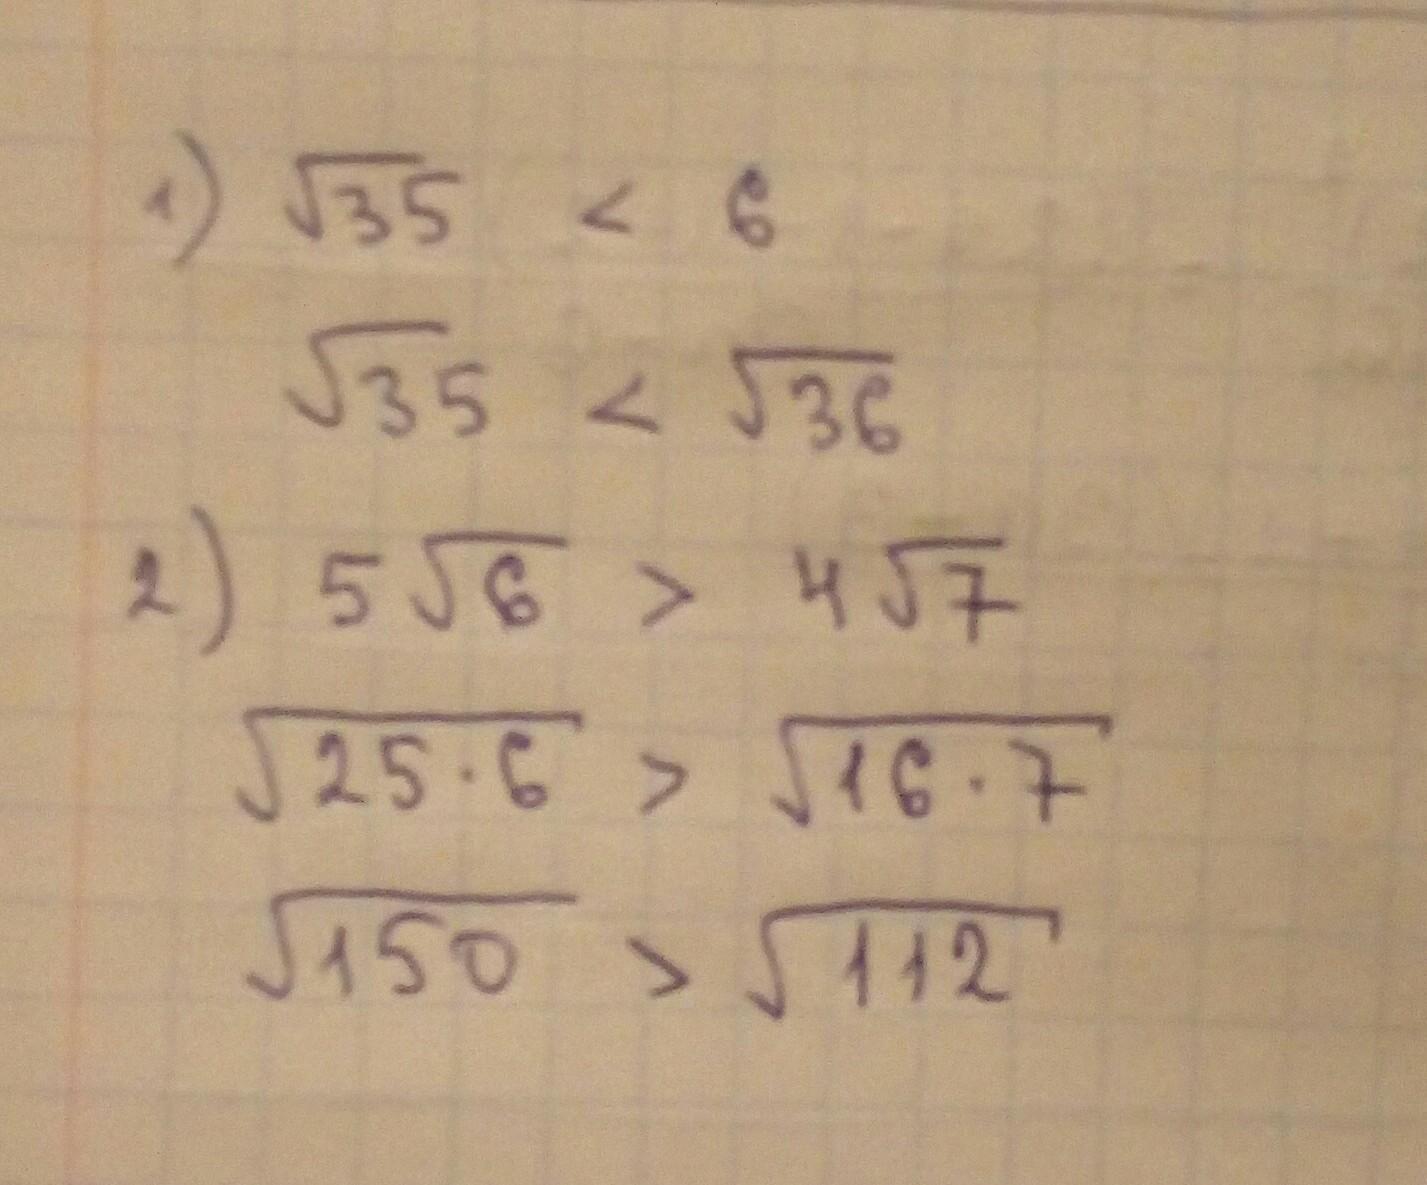 1) √35 < 6
√35 < √36
2) 5√6 > 4√7
√25·6 > √16·7
√150 > √112